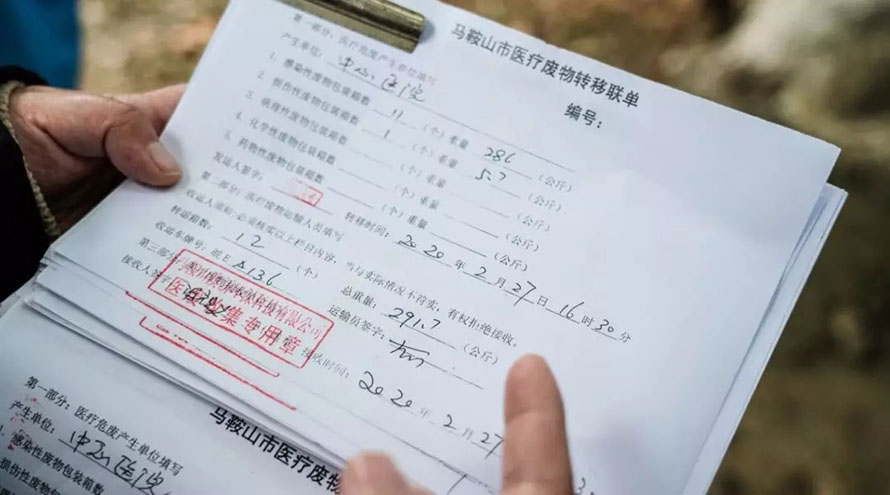 马鞍山市医疗废物转移联单
编号：
第一部分：医疗危废产生单位填写
产生单位：中心医院
1. 感染性废物包装箱数 11 （个）重量 286 （公斤）
2. 损伤性废物包装箱数 1 （个）重量 5.7 （公斤）
3. 病理性废物包装箱数 （个）重量 （公斤）
4. 化学性废物包装箱数 （个）重量 （公斤）
5. 药物性废物包装箱数 （个）重量 （公斤）
发运人签字： 转移时间：2020 年 2 月 27 日 16 时 30 分
第二部分：医疗废物运输人员填写
收运人须知：必须核实以上栏目内容，当与实际情况不符实，有权拒绝接收。
转运箱数： 12 （个） 总重量： 291.7 （公斤）
收运车牌号：皖E A136 运输员签字：
第三部分
接收人签字 接收时间：2020 年 2 月 27
环保科技有限公司
医 集专用章
马鞍山市医疗废物
第一部分：医疗危废产生单位填写
产生单位：中心医院
1. 感染性废物包装箱数
损伤性废物包装箱数